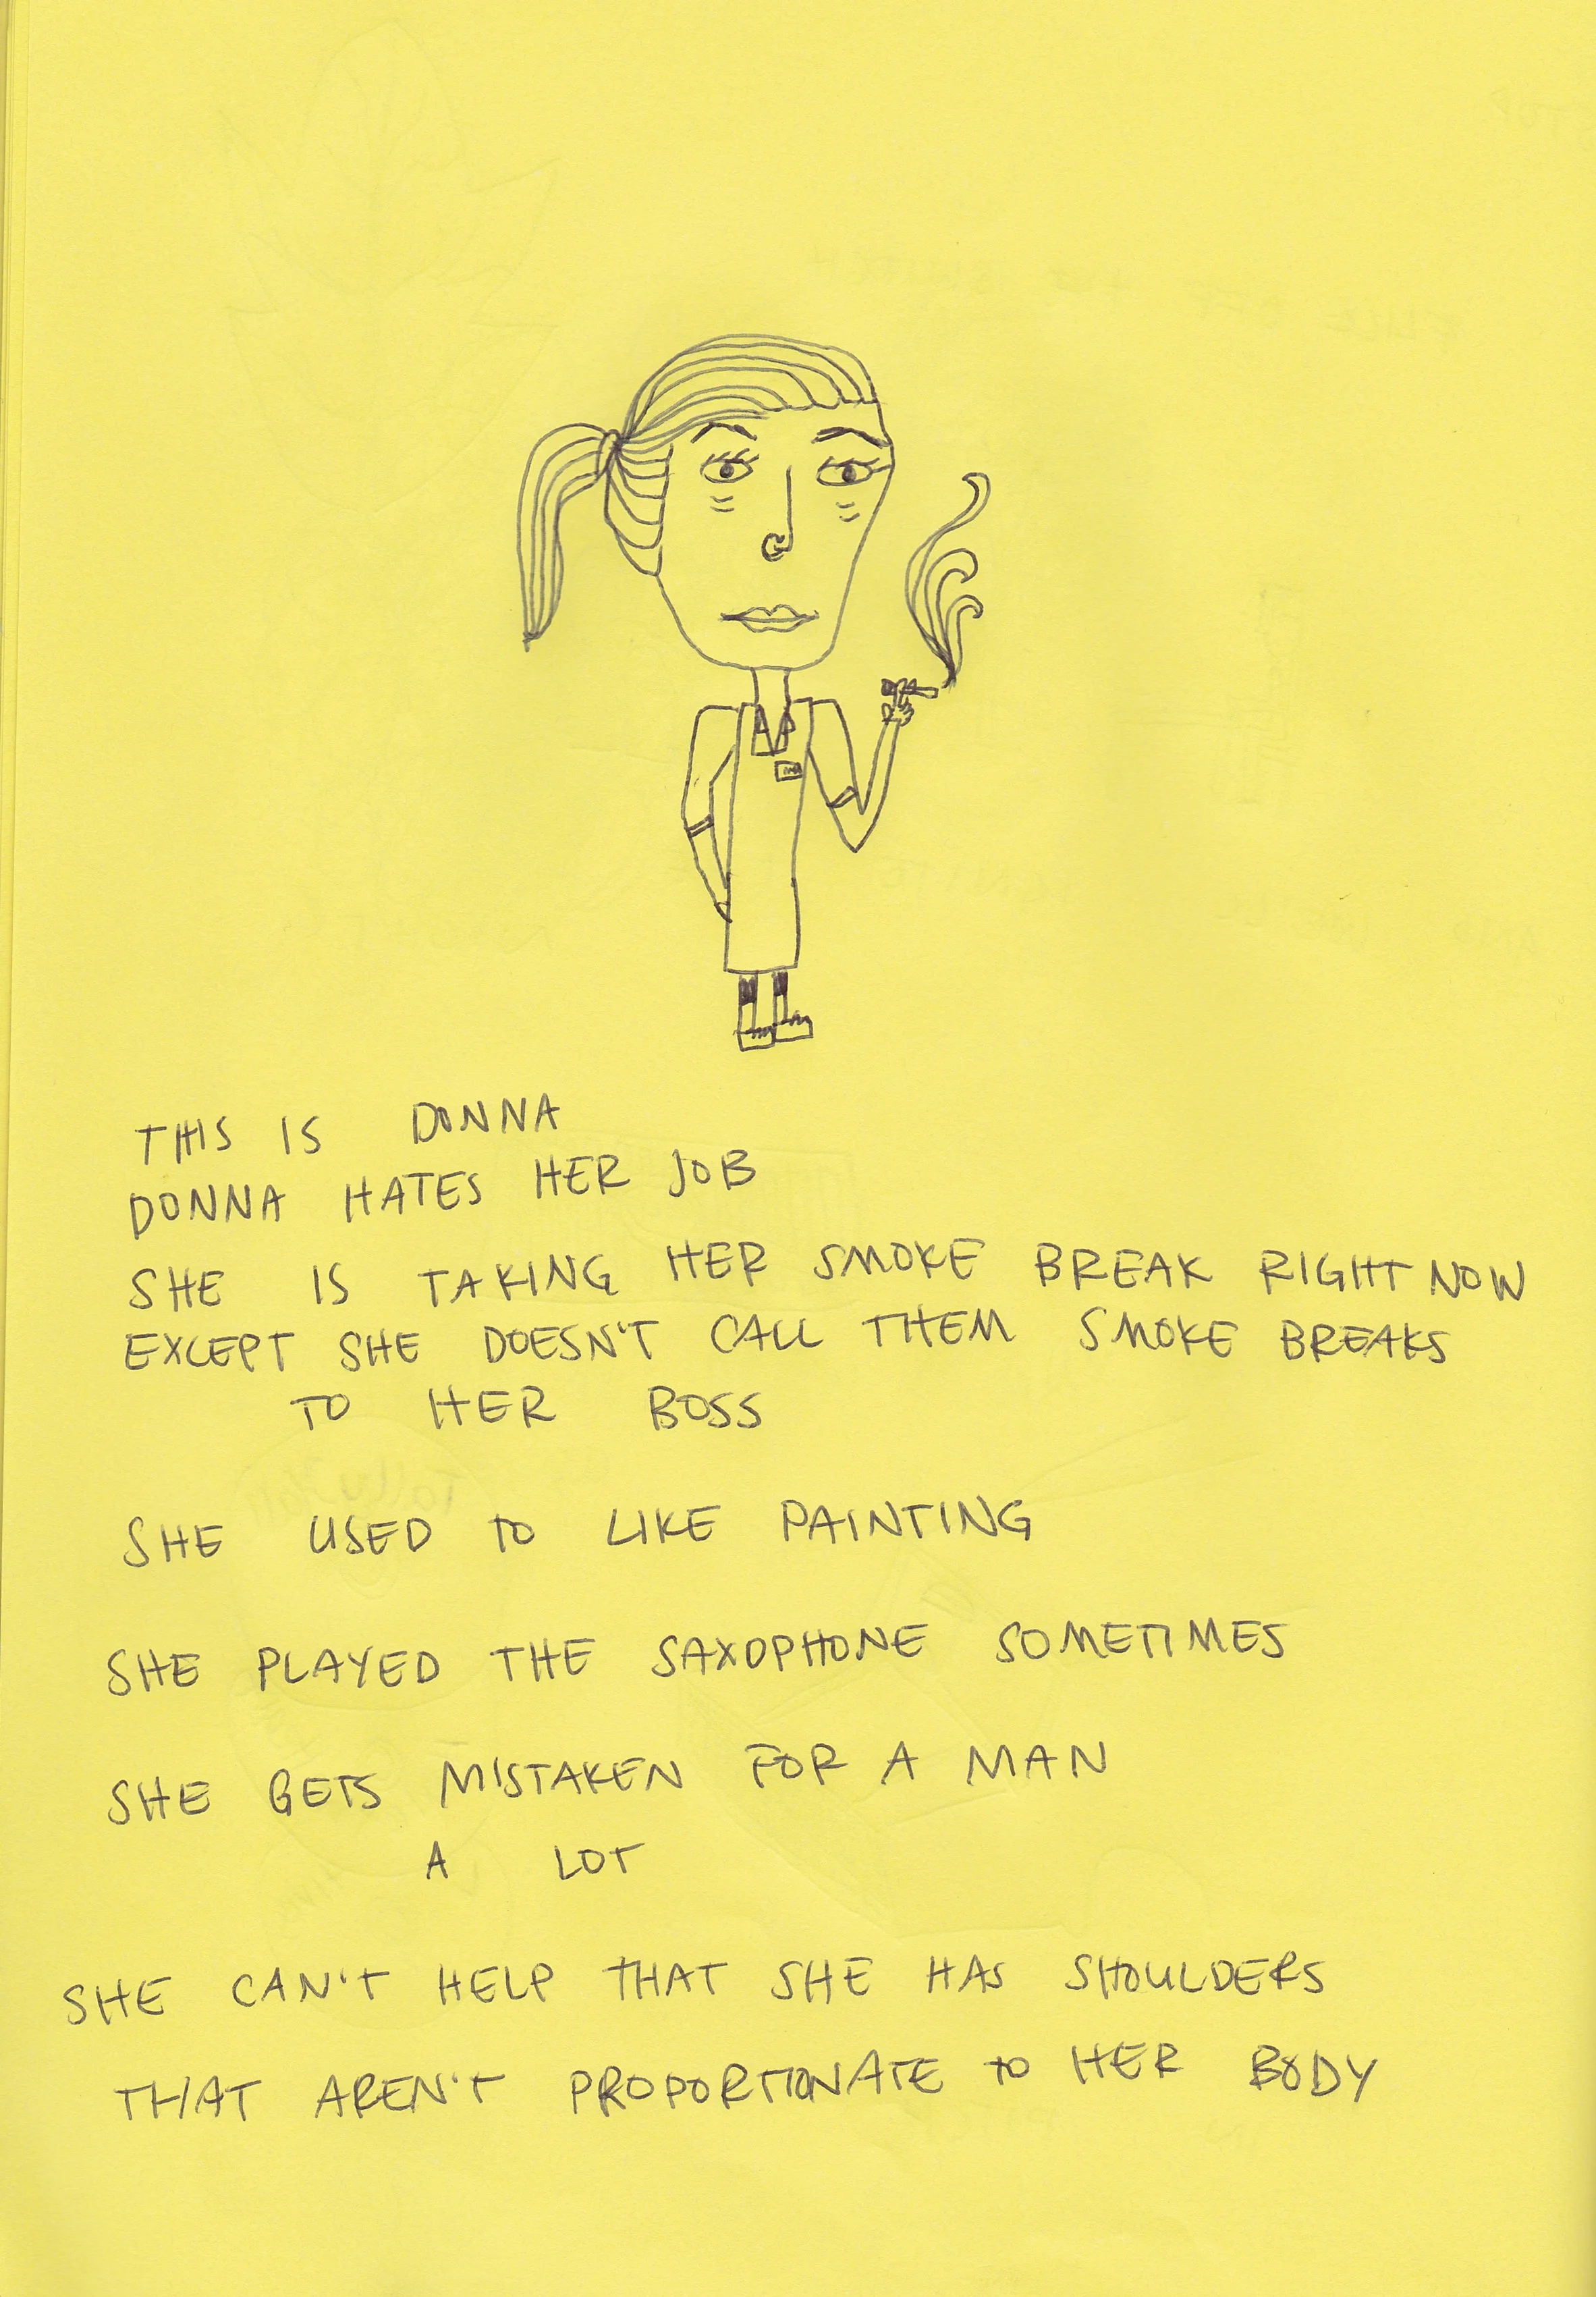 THIS IS DONNA
DONNA HATES HER JOB
SHE IS TAKING HER SMOKE BREAK RIGHT NOW
EXCEPT SHE DOESN'T CALL THEM SMOKE BREAKS
TO HER BOSS
SHE USED TO LIKE PAINTING
SHE PLAYED THE SAXOPHONE SOMETIMES
SHE GETS MISTAKEN FOR A MAN
A LOT
SHE CAN'T HELP THAT SHE HAS SHOULDERS
THAT AREN'T PROPORTIONATE TO HER BODY